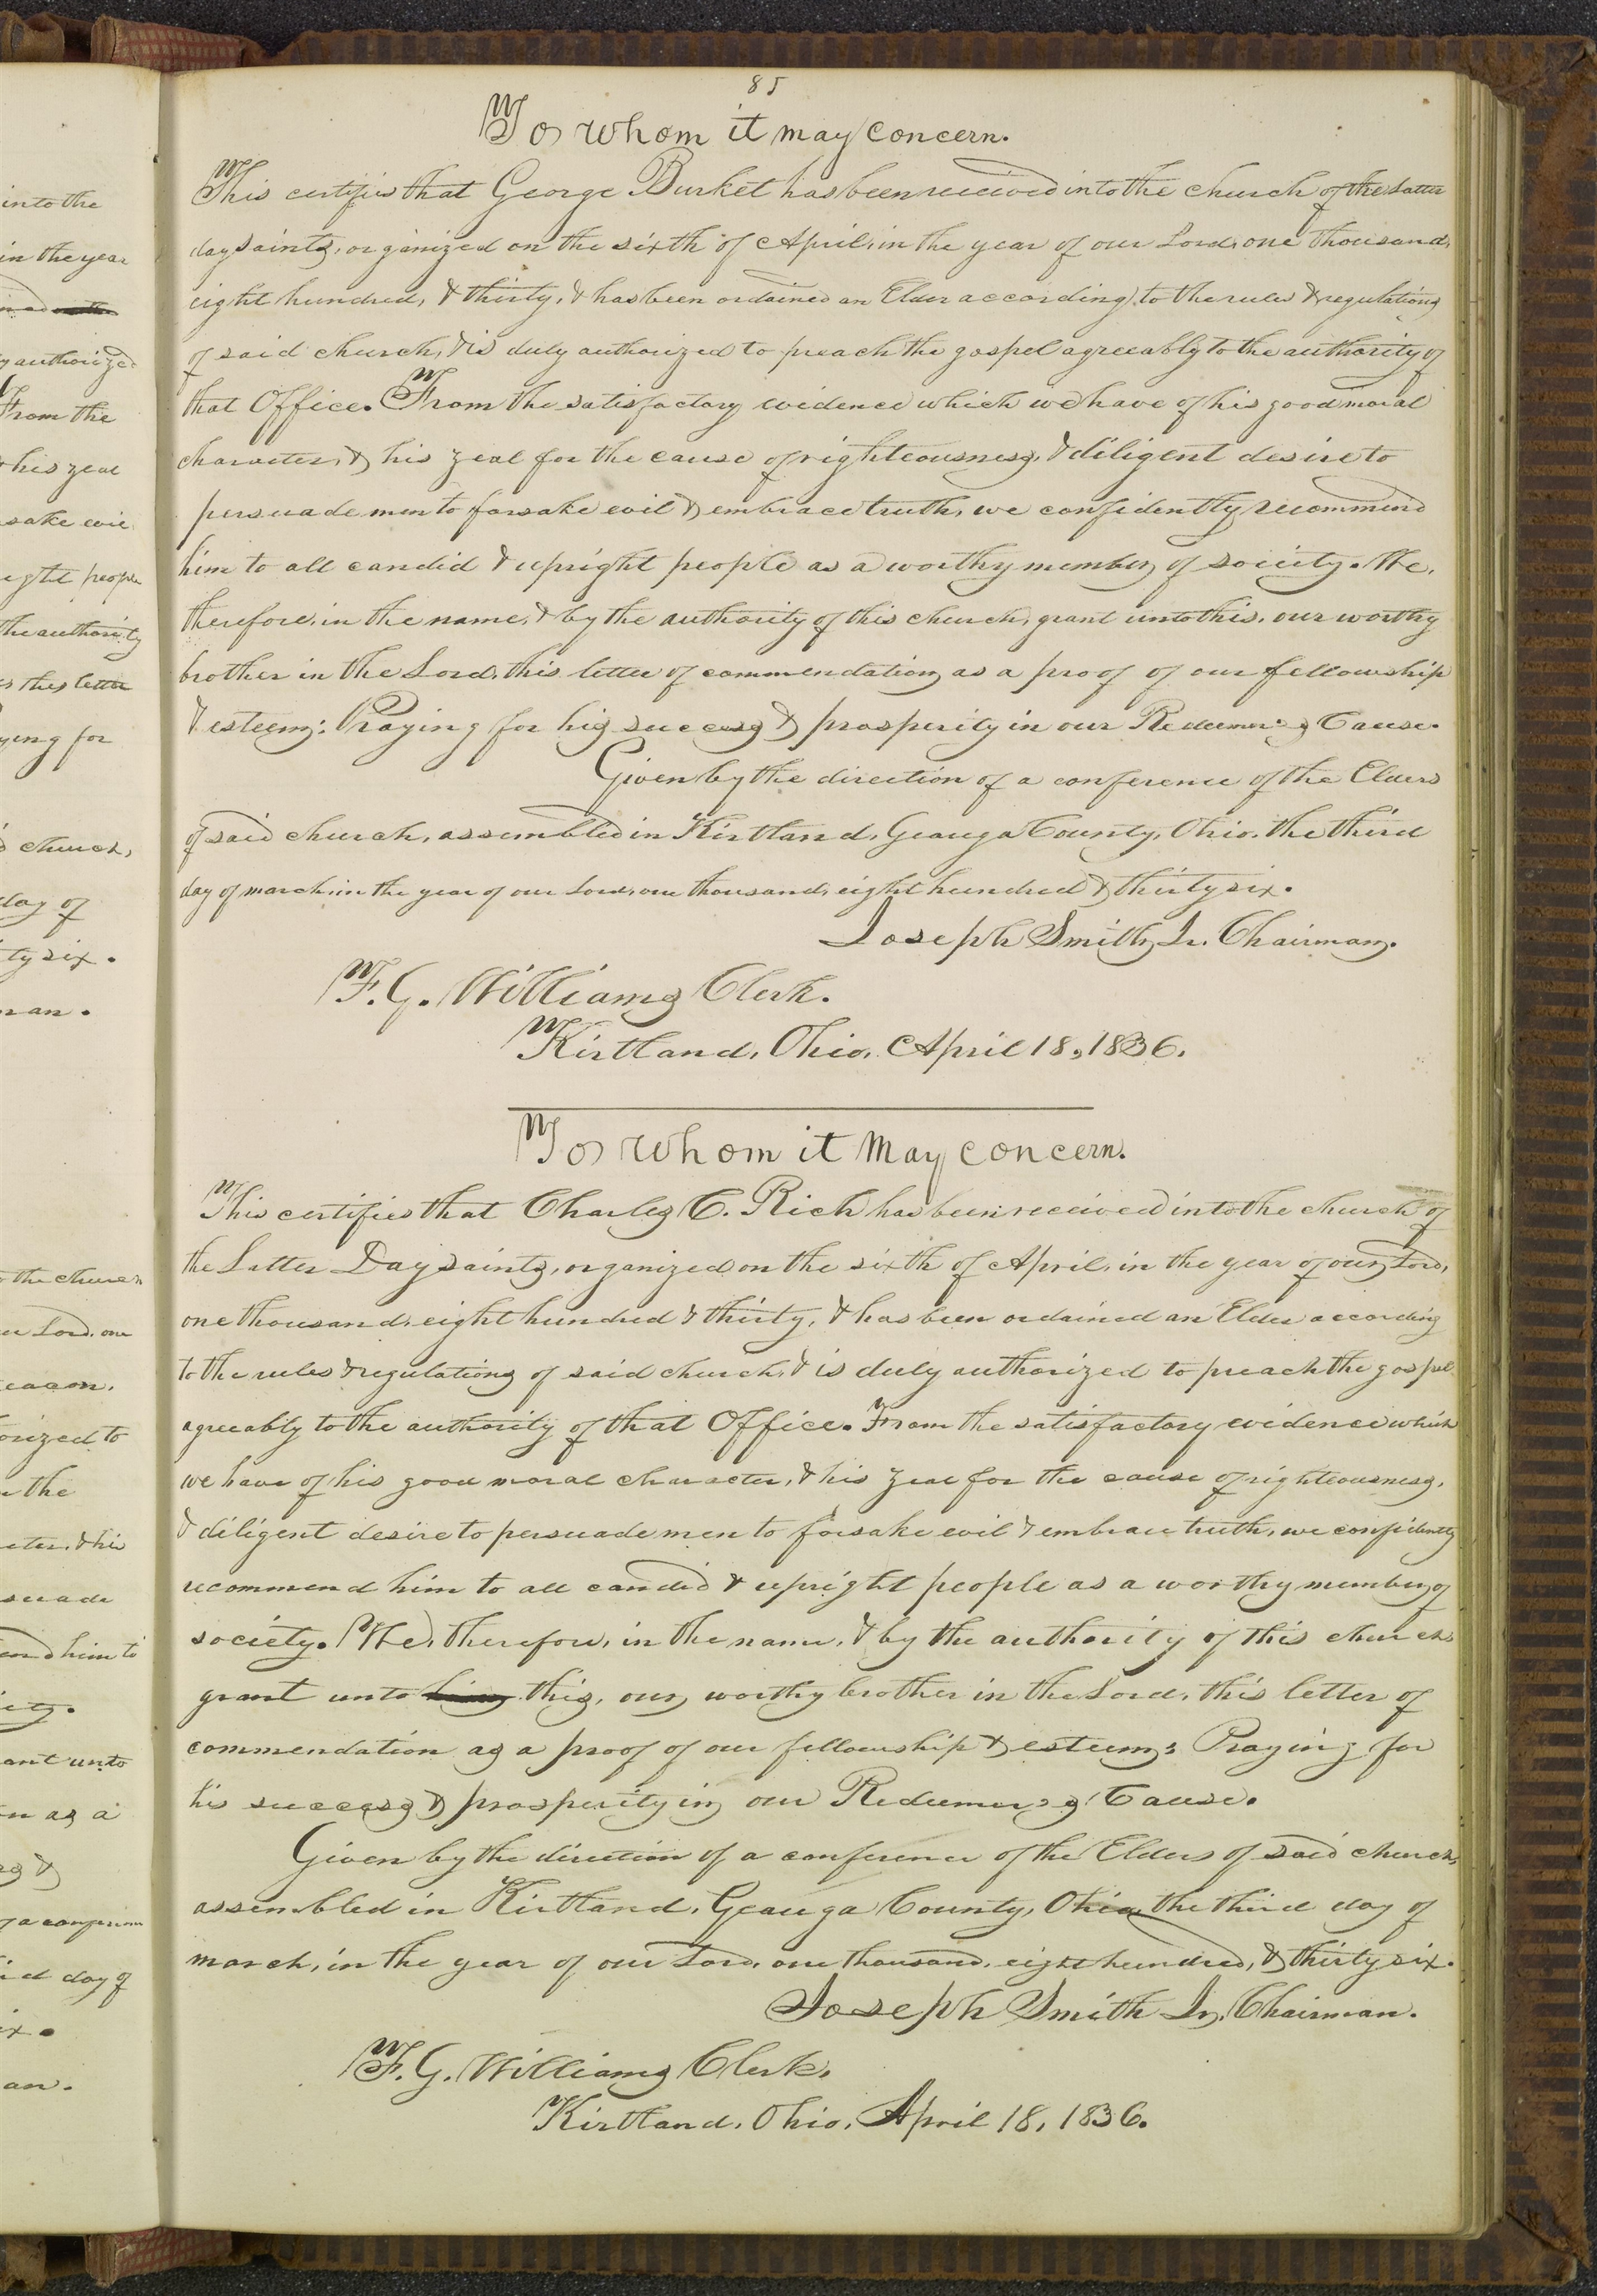 85
To whom it may concern.
This certifies that George Burket has been received into the church of the Latter
day saints, organized on the sixth of April, in the year of our Lord, one thousand,
eight hundred, & thirty, & has been ordained an Elder according to the rules & regulations
of said church, & is duly authorized to preach the gospel agreeably to the authority of
that Office. From the satisfactory evidence which we have of his good moral
character, & his zeal for the cause of righteousness, & diligent desire to
persuade men to forsake evil & embrace truth, we confidently recommend
him to all candid & upright people as a worthy member of society. We,
therefore, in the name, & by the authority of this church, grant unto this, our worthy
brother in the Lord, this letter of commendation as a proof of our fellowship
& esteem: Praying for his success & prosperity in our Redeemer's Cause.
Given by the direction of a conference of the Elders
of said church, assembled in Kirtland, Geauga County, Ohio, the third
day of march, in the year of our Lord, one thousand, eight hundred & thirty six.
Joseph Smith Jr. Chairman.
F. G. Williams Clerk.
Kirtland, Ohio, April 18, 1836.
To whom it may concern.
This certifies that Charles C. Rich has been received into the church of
the Latter Day saints, organized on the sixth of April, in the year of our Lord,
one thousand, eight hundred & thirty, & has been ordained an Elder according
to the rules & regulations of said church, & is duly authorized to preach the gospel
agreeably to the authority of that Office. From the satisfactory evidence which
we have of his good moral character, & his zeal for the cause of righteousness,
& diligent desire to persuade men to forsake evil & embrace truth, we confidently
recommend him to all candid & upright people as a worthy member of
society. We, therefore, in the name, & by the authority of this church,
grant unto him this, our worthy brother in the Lord, this letter of
commendation as a proof of our fellowship & esteem: Praying for
his success & prosperity in our Redeemer's Cause.
Given by the direction of a conference of the Elders of said church,
assembled in Kirtland, Geauga County, Ohio, the third day of
march, in the year of our Lord, one thousand, eight hundred, & thirty six.
Joseph Smith Jr. Chairman.
F. G. Williams Clerk.
Kirtland, Ohio, April 18, 1836.